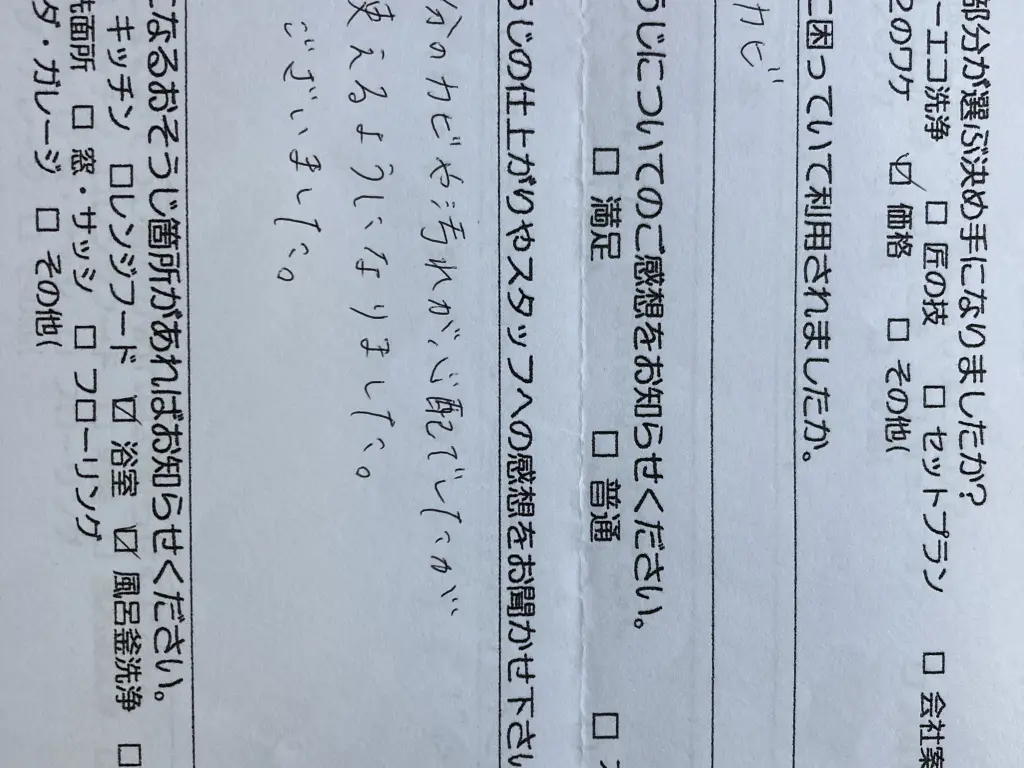 部分が選ぶ決め手になりましたか?
ーエコ洗浄 □ 匠の技 □ セットプラン □ 会社案
2のワケ ☑ 価格 □ その他(
に困っていて利用されましたか。
カビ
うじについてのご感想をお知らせください。
□ 満足 □ 普通 □
うじの仕上がりやスタッフへの感想をお聞かせ下さい
分のカビや汚れが心配でしたが、
使えるようになりました。
ございました。
なるおそうじ箇所があればお知らせください。
キッチン □レンジフード ☑ 浴室 ☑ 風呂釜洗浄 □
洗面所 □ 窓・サッシ □ フローリング
ダ・ガレージ □ その他(